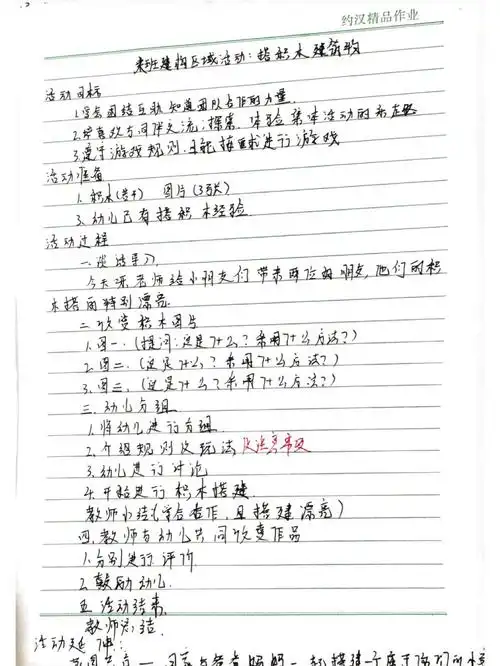 约汉精品作业
班建构区域活动:搭积木建筑物
活动目标
1.学会团结互助知道团队合作的力量.
2.学喜欢与同伴交流,探索,体验集体活动的
3.遵守游戏规则,且能按要求进行游戏
活动准备
1.积木(若干) 图片(3张)
3.幼儿已有搭积木经验
活动过程
一.谈话导入
今天呢老师给小朋友们带来两位朋友,他们的积
木搭的特别漂亮
二欣赏积木图片
1.图一.(提问:这是什么?采用什么方法?)
2.图二.(这是什么?采用什么方法?)
3.图三.(这是什么?采用什么方法?)
三.幼儿分组
1.将幼儿进行分组.
2.介绍规则及玩法及注意事项
3.幼儿进行讨论
4.开始进行积木搭建.
教师小结(学会合作,且搭建漂亮)
四.教师与幼儿共同欣赏作品
1.分别进行评价
2.鼓励幼儿.
五.活动结束.
教师总结.
活动延伸: